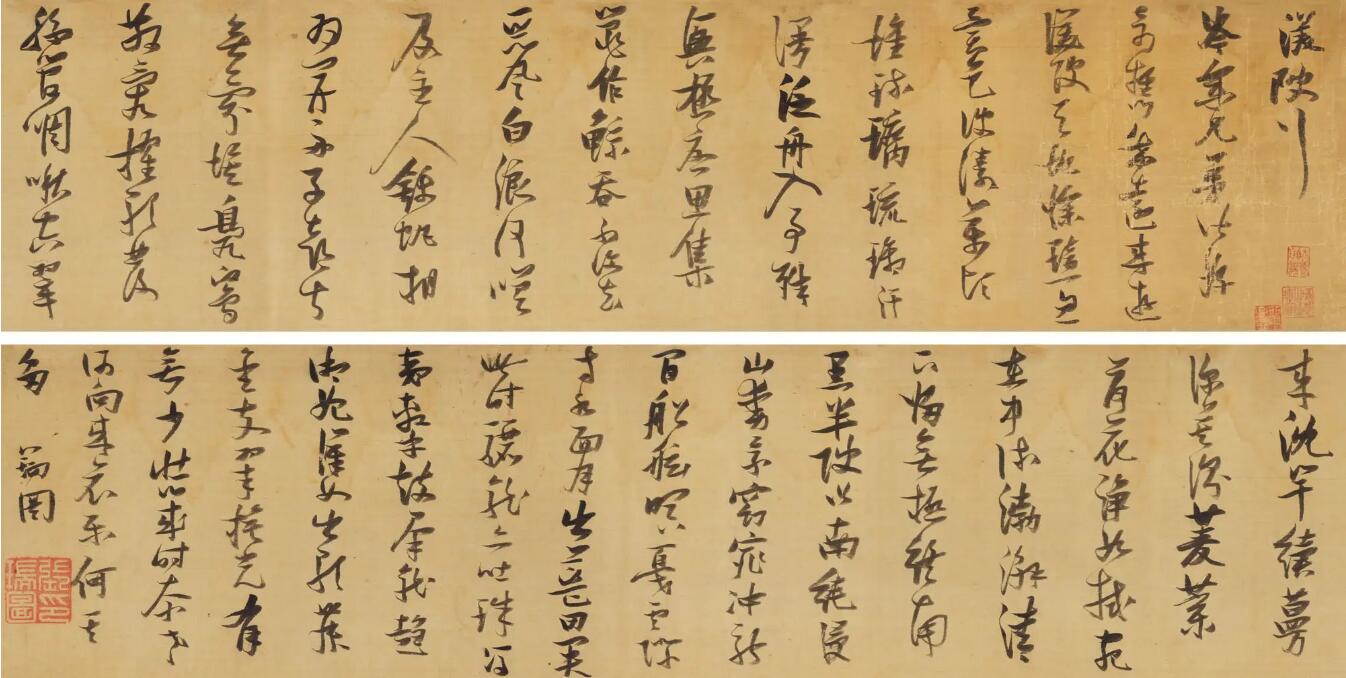 渼陂行
岑參兄弟皆好
奇攜我遠來遊
渼陂天地慘黯忽
異色波濤萬頃
堆琉璃琉璃汗
漫泛舟入事殊
興極憂思集
鼉作鯨吞不復知
惡風白浪何嗟
及主人錦帆相
為開舟子喜甚
無氛埃鳧鷖
散亂櫂歌發
絲管啁啾空翠
來沈竿續蔓
深莫測菱葉
荷花淨如拭宛
在中流渤澥清
下歸無極終南
黑半陂以南純浸
山動影窈窕沖融
間船舷暝戛雲際
寺水面月出藍田關
此時驪龍亦吐珠馮
夷擊鼓群龍趨
湘妃漢女出歌舞
金支翠旗光有
無少壯幾時奈老
何向來哀樂何其
多 瑞圖
張瑞圖印